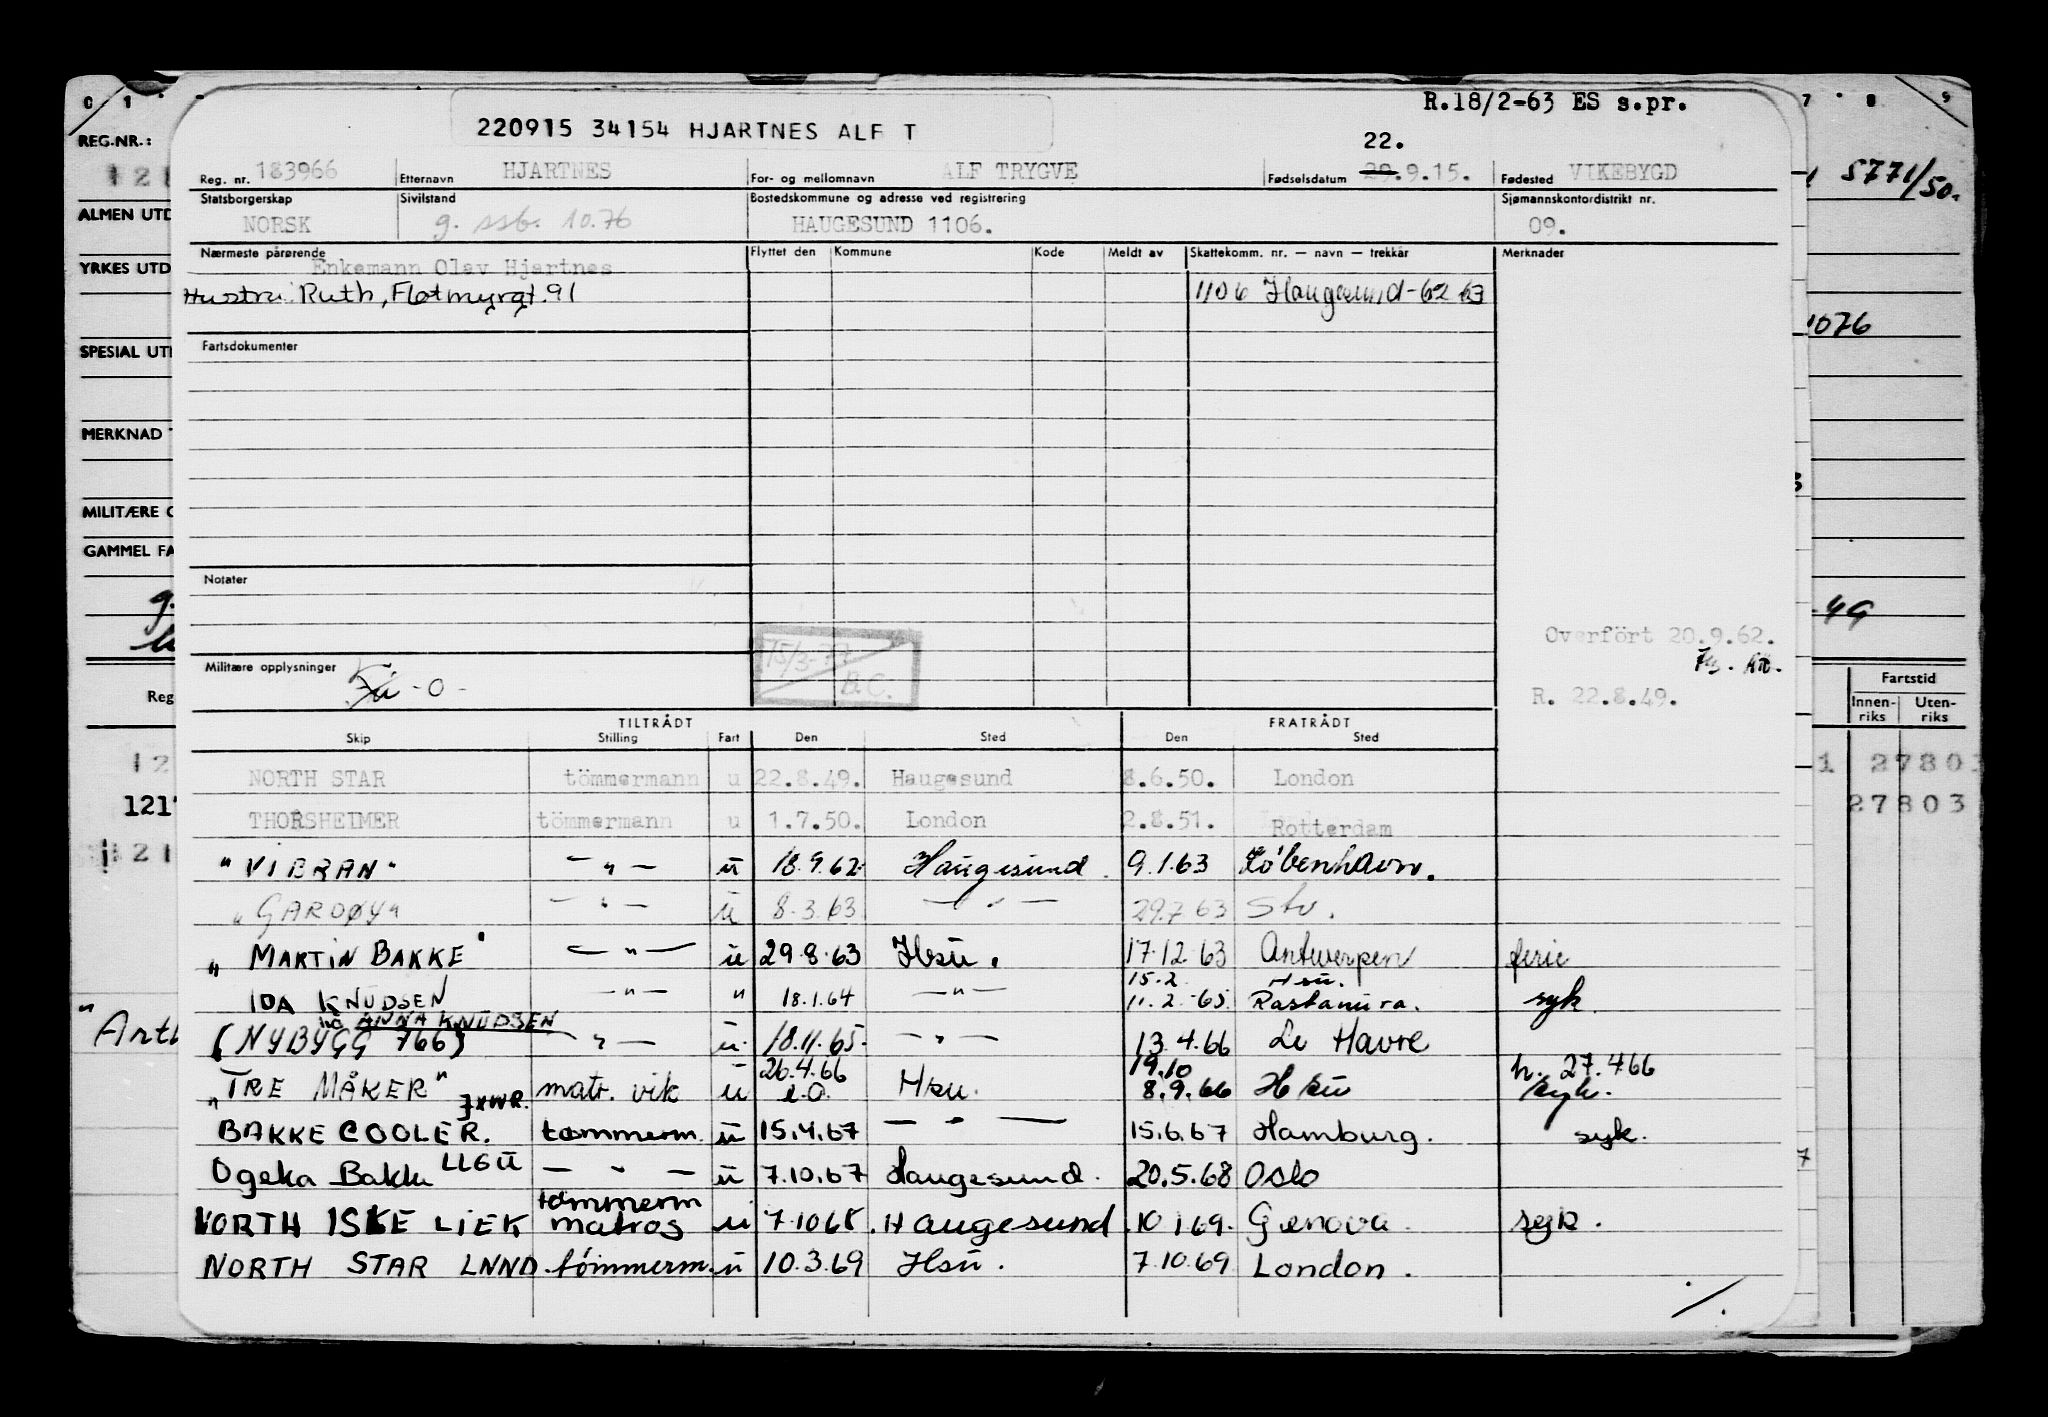 R.18/2-63 ES s.pr.
220915 34154 HJARTNES ALF T
22.
Reg. nr. 183966 Etternavn HJARTNES For- og mellomnavn ALF TRYGVE Fødselsdatum 29.9.15. Fødested VIKEBYGD
Statsborgerskap NORSK Sivilstand g. ssb. 10.76 Bostedskommune og adresse ved registrering HAUGESUND 1106. Sjømannskontordistrikt nr. 09.
Nærmeste pårørende Flyttet den Kommune Kode Meldt av Skattekomm. nr. — navn — trekkår Merknader
Enkemann Olav Hjartnes
Hustru: Ruth, Flotmyrgt. 91 1106 Haugesund-62 63
Fartsdokumenter
Notater
Overfört 20.9.62.
Militære opplysninger -0-
15/3-77
B.C.
R. 22.8.49.
TILTRÅDT FRATRÅDT
Skip Stilling Fart Den Sted Den Sted
NORTH STAR tömmermann u 22.8.49. Haugesund 8.6.50. London
THORSHEIMER tömmermann u 1.7.50. London 2.8.51. Rotterdam
"VIBRAN" — " — u 18.9.62 Haugesund. 9.1.63 København.
"GARDØY" — " — u 8.3.63 — " — 29.7 63 Stv.
"MARTIN BAKKE" — " — u 29.8.63 Hsu. 17.12.63 Antwerpen ferie
15.2 Hsu.
IDA KNUDSEN — " — " 18.1.64 — " — 11.2.65 Rastanura. syk
nå ANNA KNUDSEN
(NYBYGG 766) — " — u. 18.11.65. — " — 13.4.66 Le Havre
26.4.66 19.10 h. 27.4 66
"TRE MÅKER" matr. vik u Hsu. 8.9.66 Hsu syk.
JXWR.
BAKKE COOLER. tømmerm. u 15.4.67 — " — 15.6.67 Hamburg. syk.
Ogeka Bakke LLGU — " — u 7.10.67 Haugesund. 20.5.68 Oslo
tømmerm
NORTH ISKE LIEK matros u 7.10 68. Haugesund. 10.1.69. Genova. syk.
NORTH STAR LNND. tømmerm. u 10.3.69 Hsu. 7.10.69 London.
./.
0 1
REG.NR.:
121
ALMEN UTD
YRKES UTD
SPESIAL UT
MERKNAD
MILITÆRE
GAMMEL FA
Reg
12
1217
121
"Arth
7 8 9
5771/50.
1076
49
Fartstid
Innen-riks Uten-riks
1 27803
27803
7